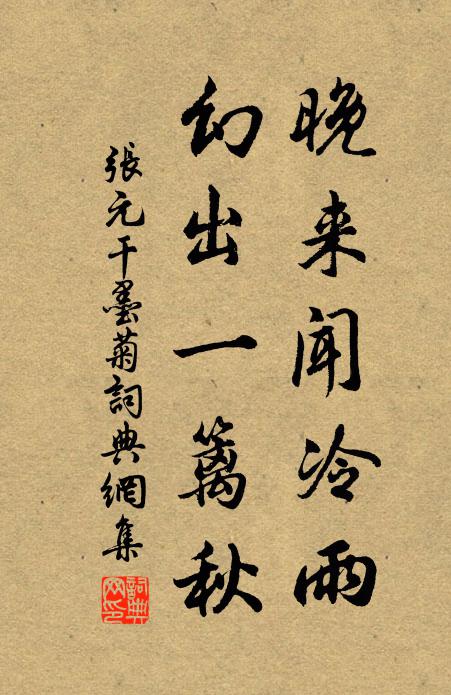 晚来闻冷雨
幻出一篱秋
張元干墨菊詞典網集
詞典网印